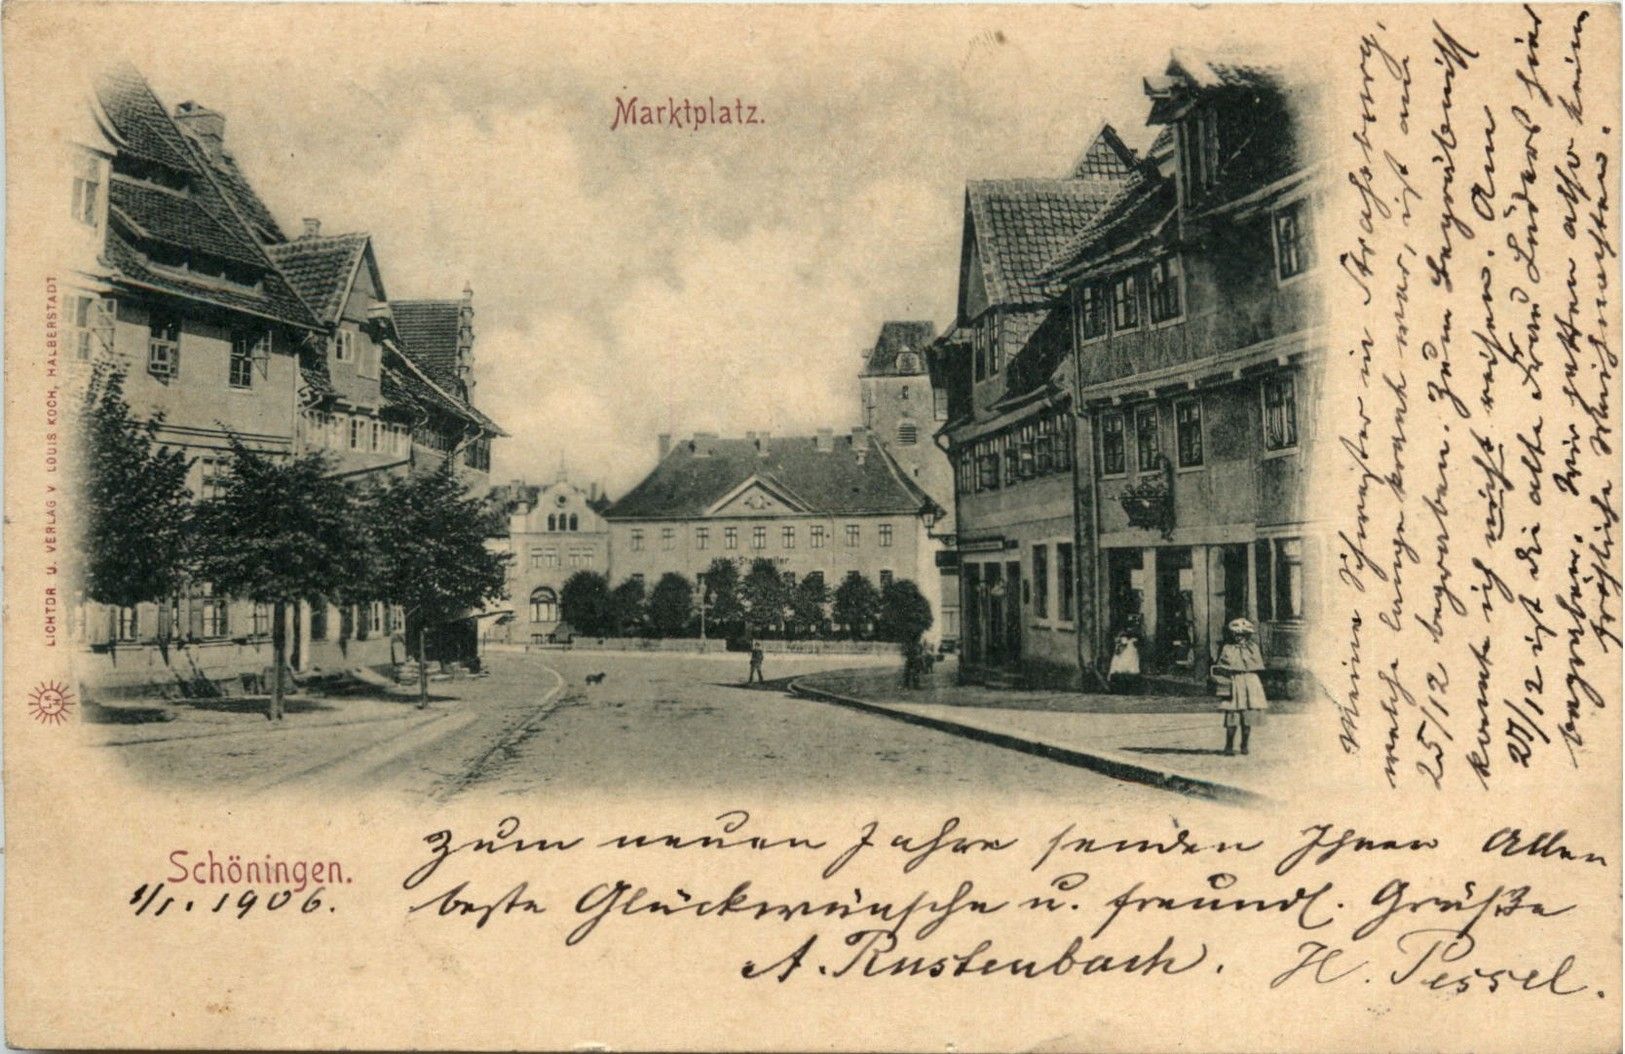 Marktplatz.
LICHTDR U. VERLAG V LOUIS KOCH, HALBERSTADT
Schöningen.
1/1. 1906.
Zum neuen Jahre senden Ihnen Allen
beste Glückwünsche u. freundl. Grüße
A. Rustenbach. H. Pessel.
Meine Schwester in Straßburg,
welche lange krank war, ist am
25/12 begraben. Zum Begräbniß
konnte ich nicht reisen. Am
27/12 ist die alte Frau Lüders hier
begraben. Wir hatten also kein
fröhliche Weihnachten.